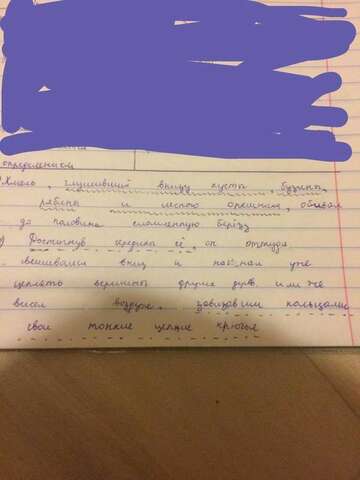 определением
Хмель, глушивший внизу кусты, бузины,
рябины и лесного орешника, обивал
до половины сломленную берёзу
Достигнув середины её, он оттуда
свешивался вниз и начинал уже
цеплять вершины других дерев. или же
висел воздухе, завязавши кольцами
свои тонкие цепкие крючья